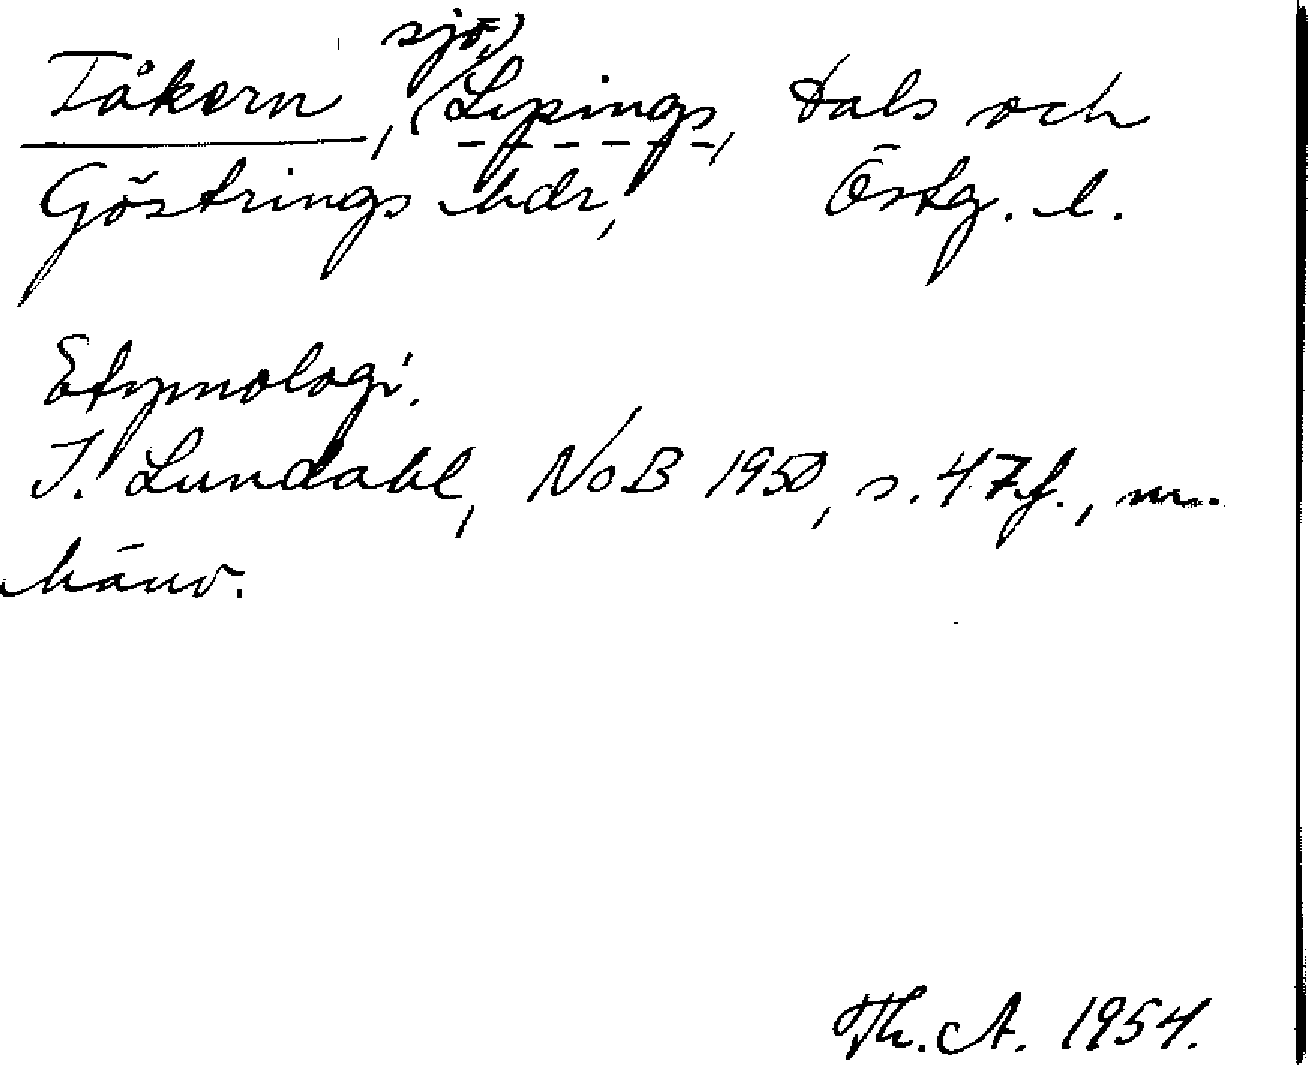 Tåkern, (sjö,) Lysings, Dals och
Göstrings hdr, Östg. l.
Etymologi.
I. Lundahl, NoB 1950, s. 47f., m.
hänv.
Th. A. 1954.